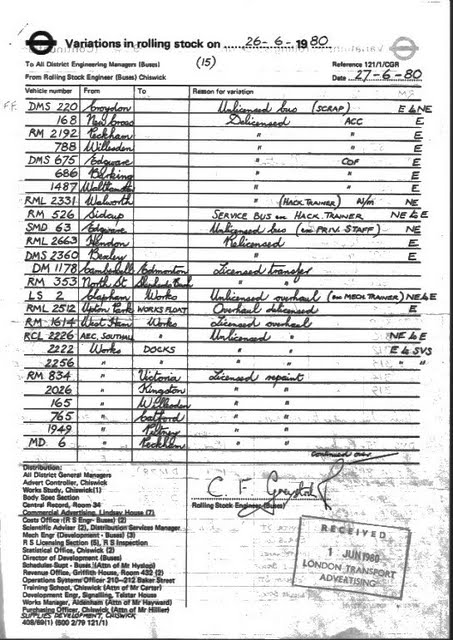 Variations in rolling stock on 26-6-1980
To All District Engineering Managers (Buses) (15) Reference 121/1/CGR
From Rolling Stock Engineer (Buses) Chiswick Date 27-6-80
Vehicle number From To Reason for variation
DMS 220 Croydon Unlicensed bus (SCRAP) E to NE
168 New Cross Delicensed ACC E
RM 2192 Peckham " " E
788 Willesden " " E
DMS 675 Edgware " COF E
686 Barking " " E
1487 Walthamstow " " E
RML 2331 Walworth " (HACK TRAINER) N/M NE
RM 526 Sidcup SERVICE BUS on HACK TRAINER NE to E
SMD 63 Edgware Unlicensed bus (on PRIV STAFF) E
RML 2663 Hendon Relicensed E
DMS 2360 Bexley " E
DM 1178 Camberwell Edmonton Licensed transfer
RM 353 North St Shepherds Bush " "
LS 2 Clapham Works Unlicensed overhaul (on MECH TRAINER) NE to E
RML 2512 Upton Park WORKS FLOAT Overhaul delicensed E
RM 1614 West Ham Works Licensed overhaul
RCL 2226 AEC, SOUTHALL " Unlicensed " NE to E
2222 Works DOCKS " " E to SVS
2256 " " " " " "
RM 834 " Victoria Licensed repaint
2026 " Kingston " "
165 " Willesden " "
765 " Catford " "
1949 " Putney " "
MD 6 " Peckham " "
continued over
Distribution:
All District General Managers
Advert Controller, Chiswick
Works Study, Chiswick(1)
Body Spec Section
Central Record, Room 34
Commercial Advertising, Lindsay House (7)
Costs Office (R S Engr- Buses) (2)
Scientific Adviser (2), Distribution Services Manager
Mech Engr (Development - Buses) (3)
R S Licensing Section (5), R S Inspection
Statistical Office, Chiswick (2)
Director of Development (Buses)
Schedules Supt - Buses (Attn of Mr Hyslop)
Revenue Office, Griffith House, Room 432 (2)
Operations Systems Officer 210-212 Baker Street
Training School, Chiswick (Attn of Mr Carter)
Development Engr, Signalling, Telstar House
Works Manager, Aldenham (Attn of Mr Hayward)
Purchasing Officer, Chiswick (Attn of Mr Hillier)
SUPPLIES DEVELOPMENT, CHISWICK
408/69(1) (500 2/79 121/1)
Rolling Stock Engineer (Buses)
RECEIVED
1 JUN 1980
LONDON TRANSPORT
ADVERTISING